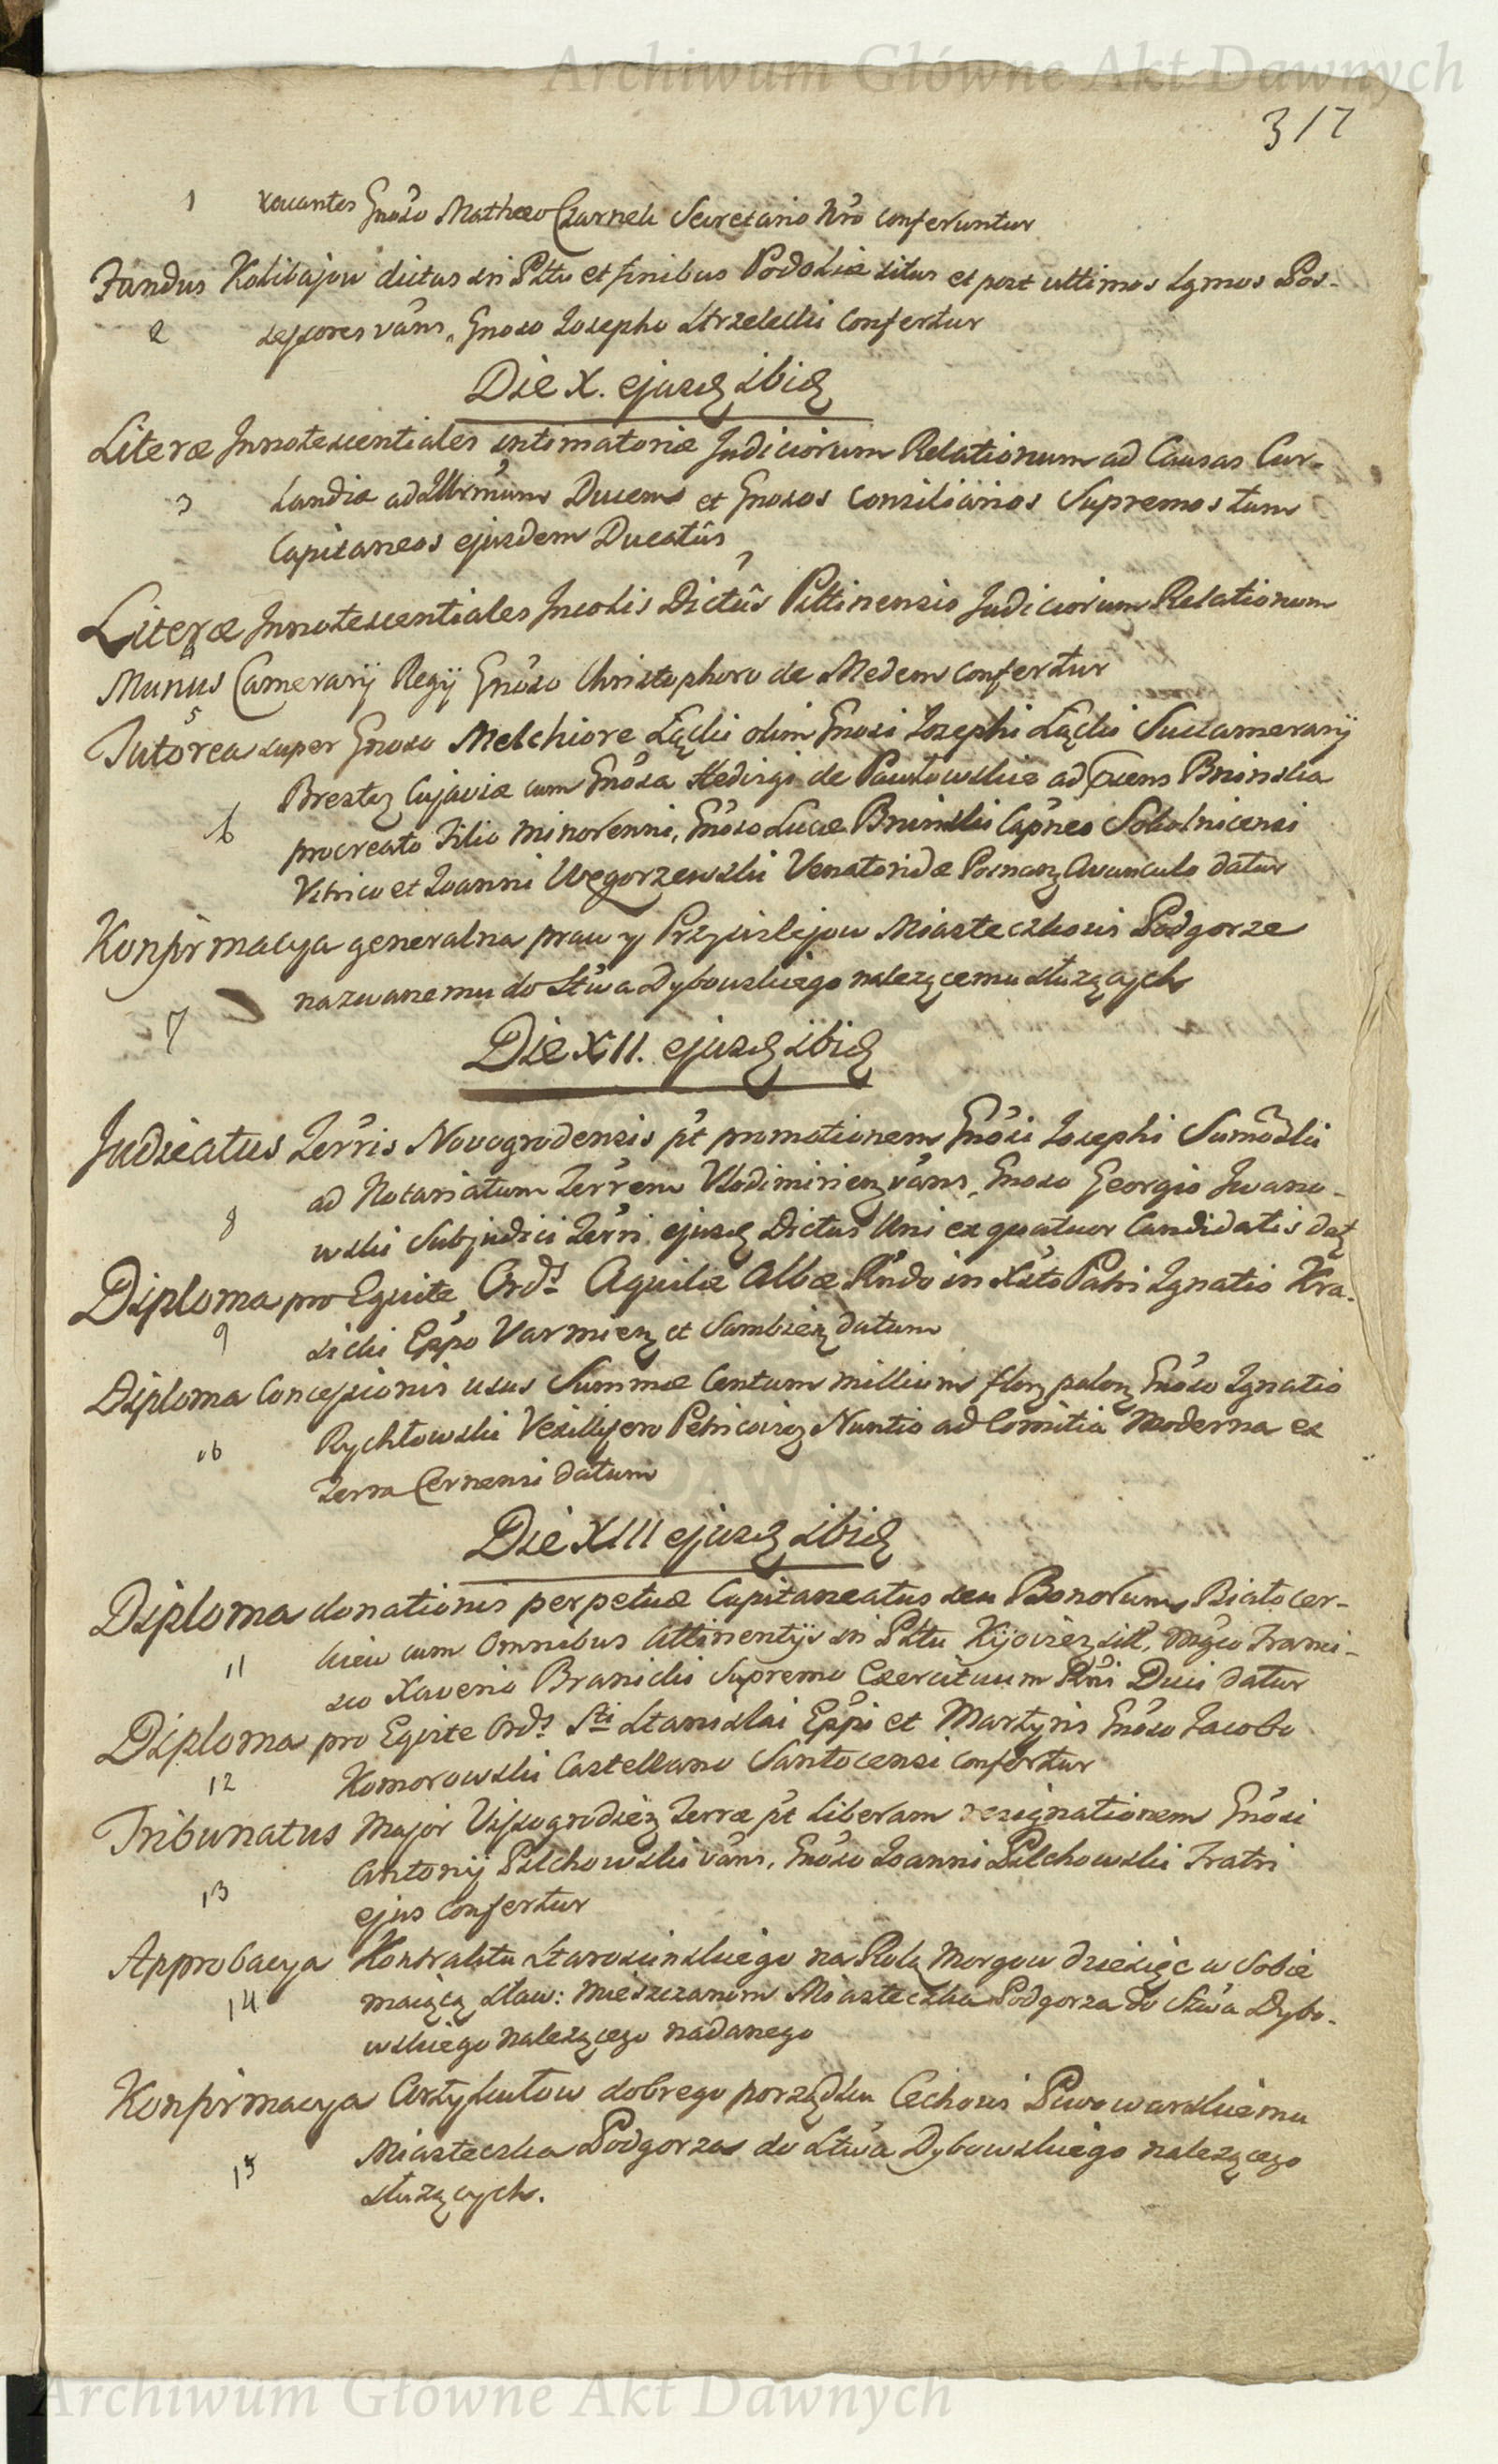 Archiwum Główne Akt Dawnych
317
1 vacantes Gnoso Mathæo Czarnek Secretario Nro conferuntur
Fundus Kolibajow dictus in Pttu et finibus Podoliæ situs et post ultimos Lgmos Pos-
2 sessores vans, Gnoso Josepho Strzelecki Confertur
Die X. ejusd ibid
Literæ Innotescentiales intimatoriæ Judiciorum Relationum ad Causas Cur-
3 landiæ ad Illrmum Ducem et Gnosos Consiliarios Supremos tum
Capitaneos ejusdem Ducatûs
Literæ Innotescentiales Incolis Dictûs Piltinensis Judiciorum Relationum
4
Munus Camerarij Regij Gnoso Christophoro de Medem confertur
5
Tutorea super Gnoso Melchiore Łącki olim Gnosi Josephi Łącki Succamerarij
Brestz Cujaviæ cum Gnosa Hedvigi de Pawłowskie ad præns Bninska
6 procreato Filio minorenni, Gnoso Lucæ Bninski Capneo Sokolnicensi
Vitrico et Joanni Węgorzewski Venatoridæ Posnanz Avunculo datur
Konfirmacya generalna praw y Przywilejow Miasteczkowi Podgorze
7 nazwanemu do Stwa Dybowskiego należącemu służących
Die XII. ejusd ibid
Judicatus Terris Novogrodensis pt promotionem Gnosi Josephi Sumowski
ad Notariatum Terrem Vlodimirienz vans, Gnoso Georgio Iwano-
8 wski Subjudici Terri ejusd Dictus Uni ex quatuor Candidatis datz
Diploma pro Equite Ords Aquilæ Albæ Rndo in Xsto Patri Ignatio Kra-
9 sicki Eppo Varmienz et Sambienz datum
Diploma Concessionis usus Summæ Centum millium florz polonz Gnoso Ignatio
10 Rychłowski Vexillifero Petricovienz Nuntio ad Comitia Moderna ex
Terra Cernensi datum
Die XIII ejusd ibid
Diploma donationis perpetuæ Capitaneatus seu Bonorum Białocer-
11 kiew cum Omnibus Attinentijs in Pttu Kijovienz sitt, Mgco Franci-
sco Xaverio Branicki Supremo Exercituum Rni Duci datur
Diploma pro Eqvite Ords Sti Stanislai Eppi et Martyris Gnoso Jacobo
12 Komorowski Castellano Santocensi confertur
Tribunatus Major Vissogrodienz Terræ pt liberam resignationem Gnosi
Antonij Pilchowski vans, Gnoso Joanni Pilchowski Fratri
13 ejus Confertur
Approbacya Kontraktu Starościnskiego na Rolą Morgow dziesięć w Sobie
14 maiącą Sław: Mieszczanom Miasteczka Podgorza do Stwa Dybo-
wskiego należącego nadanego
Konfirmacya Artykułow dobrego porządku Cechowi Piwowarskiemu
15 Miasteczka Podgorza do Stwa Dybowskiego należącego
służących.
Archiwum Główne Akt Dawnych